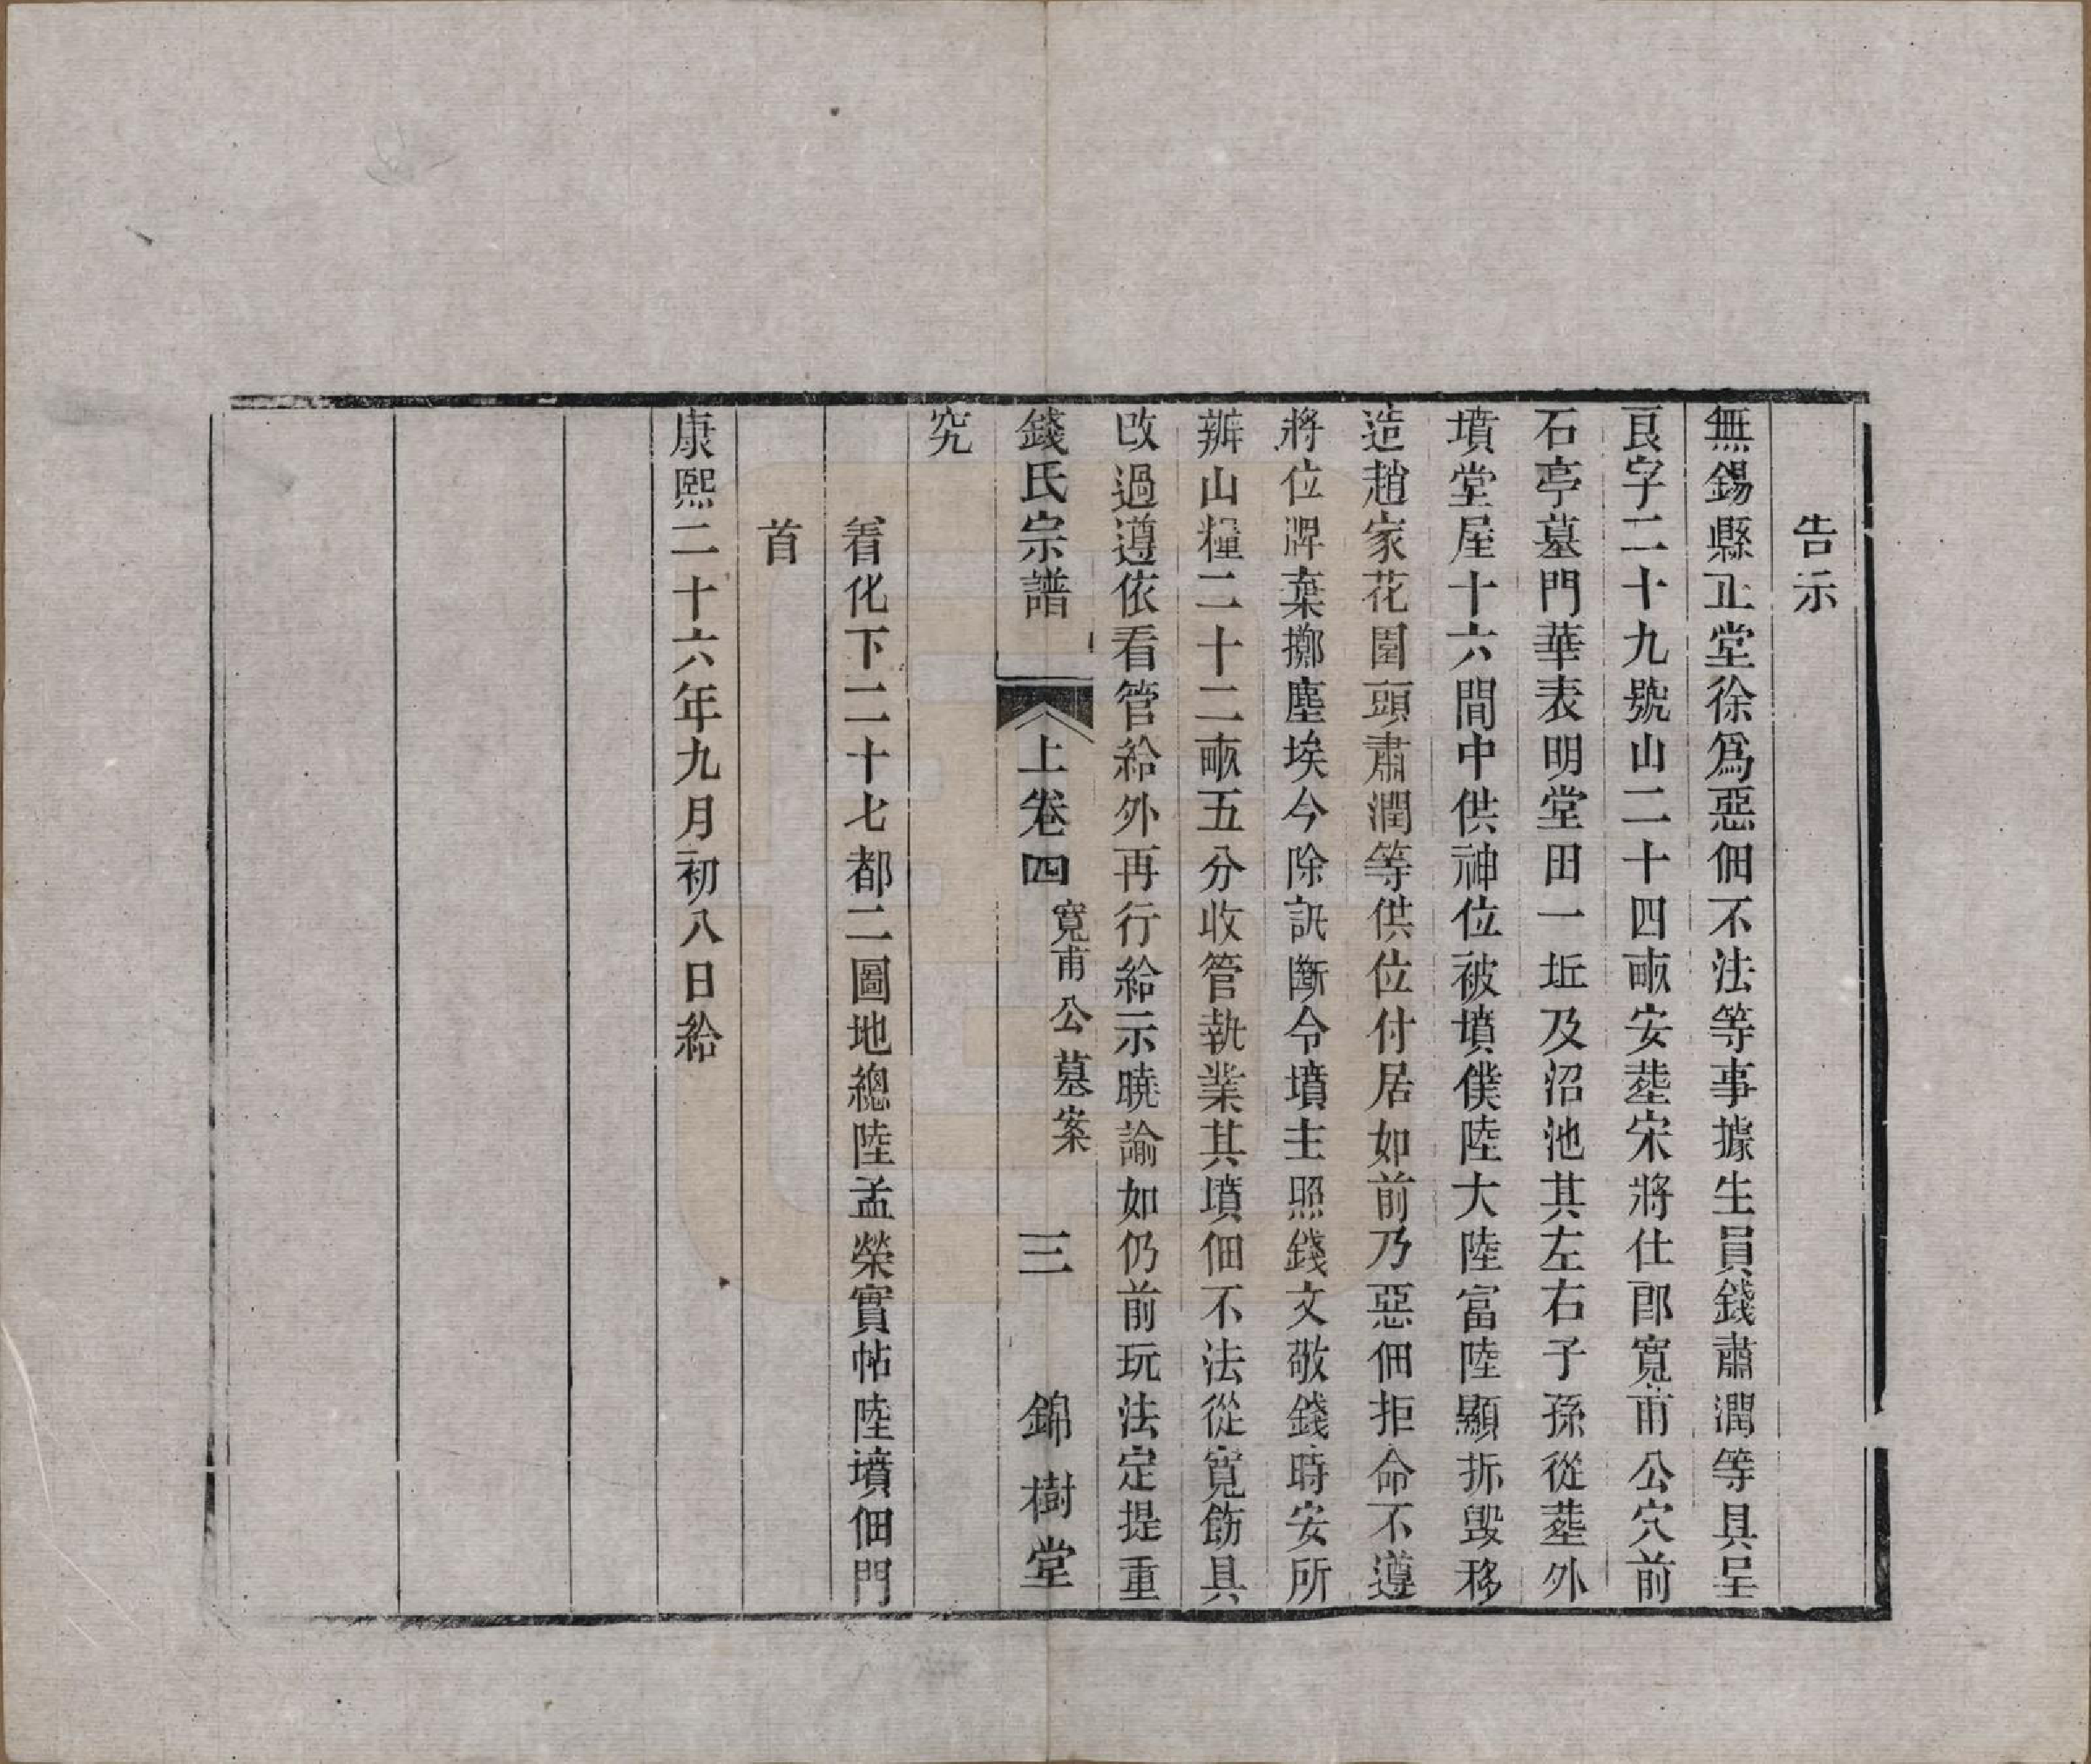 告示
無錫縣正堂徐爲惡佃不法等事據生員錢肅潤等具呈
良字二十九號山二十四畝安塟宋將仕郎寬甫公穴前
石亭墓門華表明堂田一坵及沼池其左右子孫從塟外
墳堂屋十六間中供神位被墳僕陸大陸富陸顯拆毀移
造趙家花園頭肅潤等供位付居如前乃惡佃拒命不遵
將位牌棄擲塵埃今除訊斷令墳主照錢文敬錢時安所
辦山糧二十二畝五分收管執業其墳佃不法從寬飭具
改過遵依看管給外再行給示曉諭如仍前玩法定提重
錢氏宗譜 上卷四 寬甫公墓案 三 錦樹堂
究
着化下二十七都二圖地總陸孟榮實帖陸墳佃門
首
康熙二十六年九月初八日給